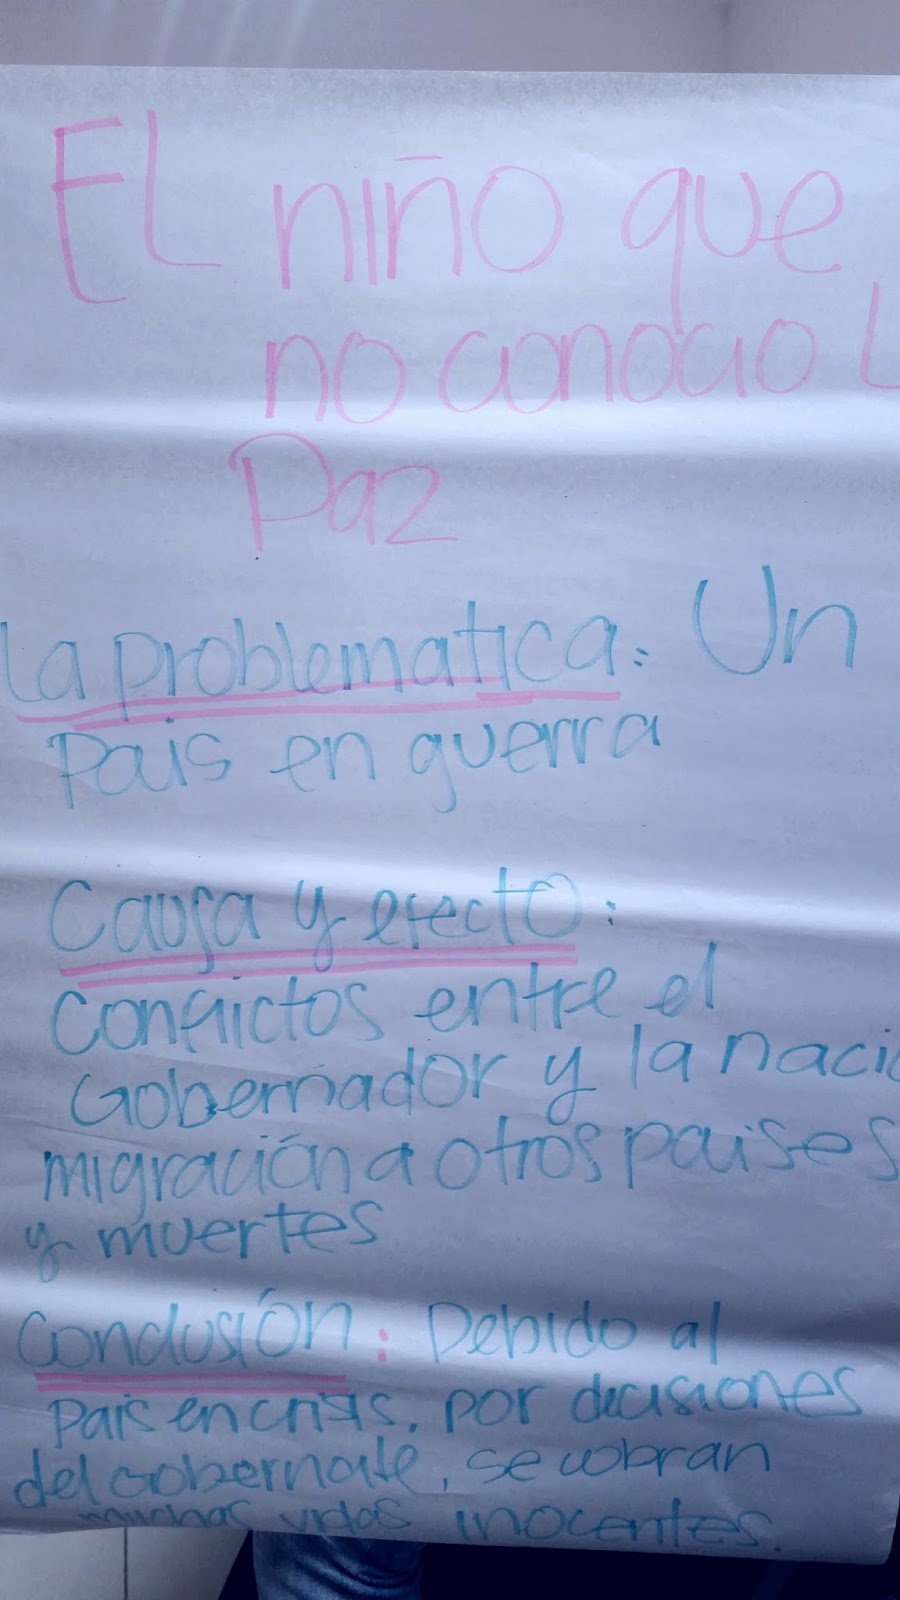 EL niño que
no conocio L
Paz
La problematica: Un
Pais en guerra
Causa y efecto:
Conflictos entre el
Gobernador y la nacio
migración a otros paises
y muertes
Conclusión: Debido al
Pais en crisis, por decisiones
del Gobernate, se cobran
muchas vidas inocentes.